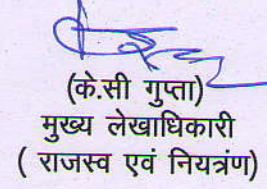 (के.सी गुप्ता)
मुख्य लेखाधिकारी
( राजस्व एवं नियत्रंण)